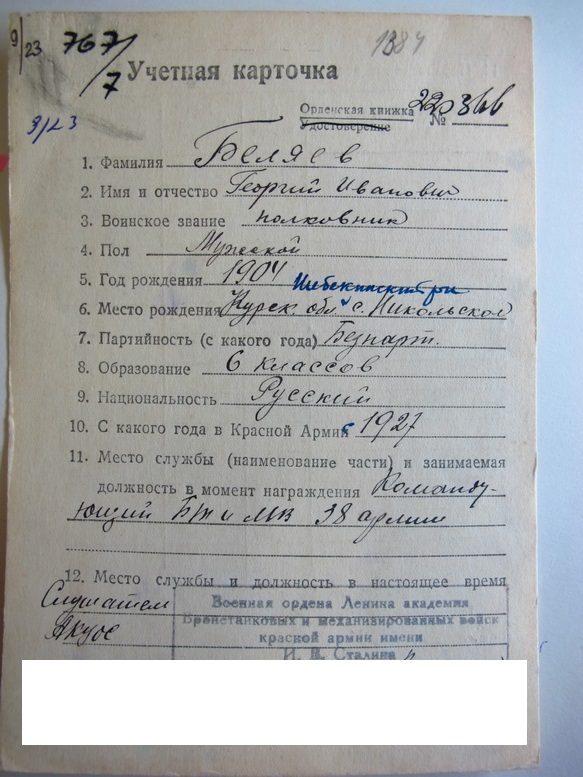 9/23 767/7 1384
Учетная карточка
9/23
Орденская книжка
Удостоверение № 220366
1. Фамилия Беляев
2. Имя и отчество Георгий Иванович
3. Воинское звание полковник
4. Пол Мужской
5. Год рождения 1904
Шебекинский р-н
6. Место рождения Курск. обл. с. Никольское
7. Партийность (с какого года) Безпарт.
8. Образование 6 классов
9. Национальность Русский
10. С какого года в Красной Армии с 1927
11. Место службы (наименование части) и занимаемая
должность в момент награждения Команду-
ющий БТ и МВ 38 армии
12. Место службы и должность в настоящее время
Слушатель
Военная ордена Ленина академия
Бронетанковых и механизированных войск
АКУОС
красной армии имени
И. В. Сталина